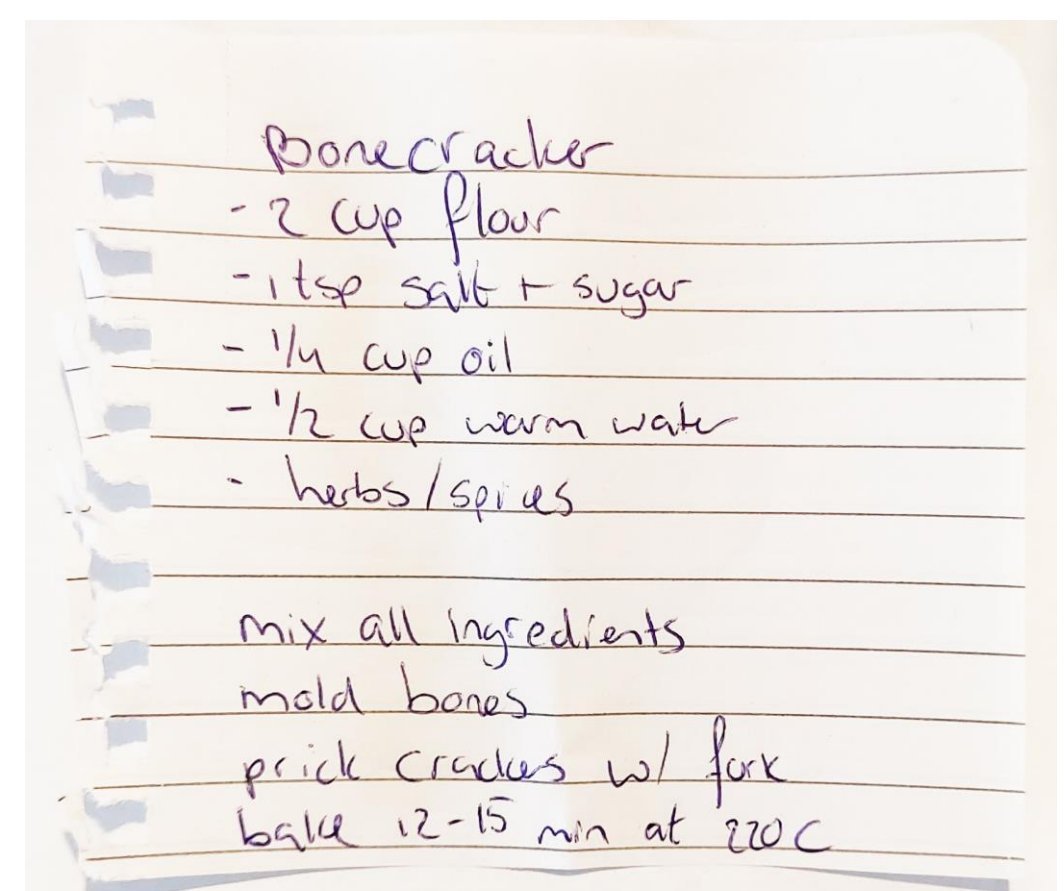 Bonecracker
- 2 cup flour
- 1 tsp salt + sugar
- 1/4 cup oil
- 1/2 cup warm water
- herbs/spices
mix all ingredients
mold bones
prick crackers w/ fork
bake 12-15 min at 220 C